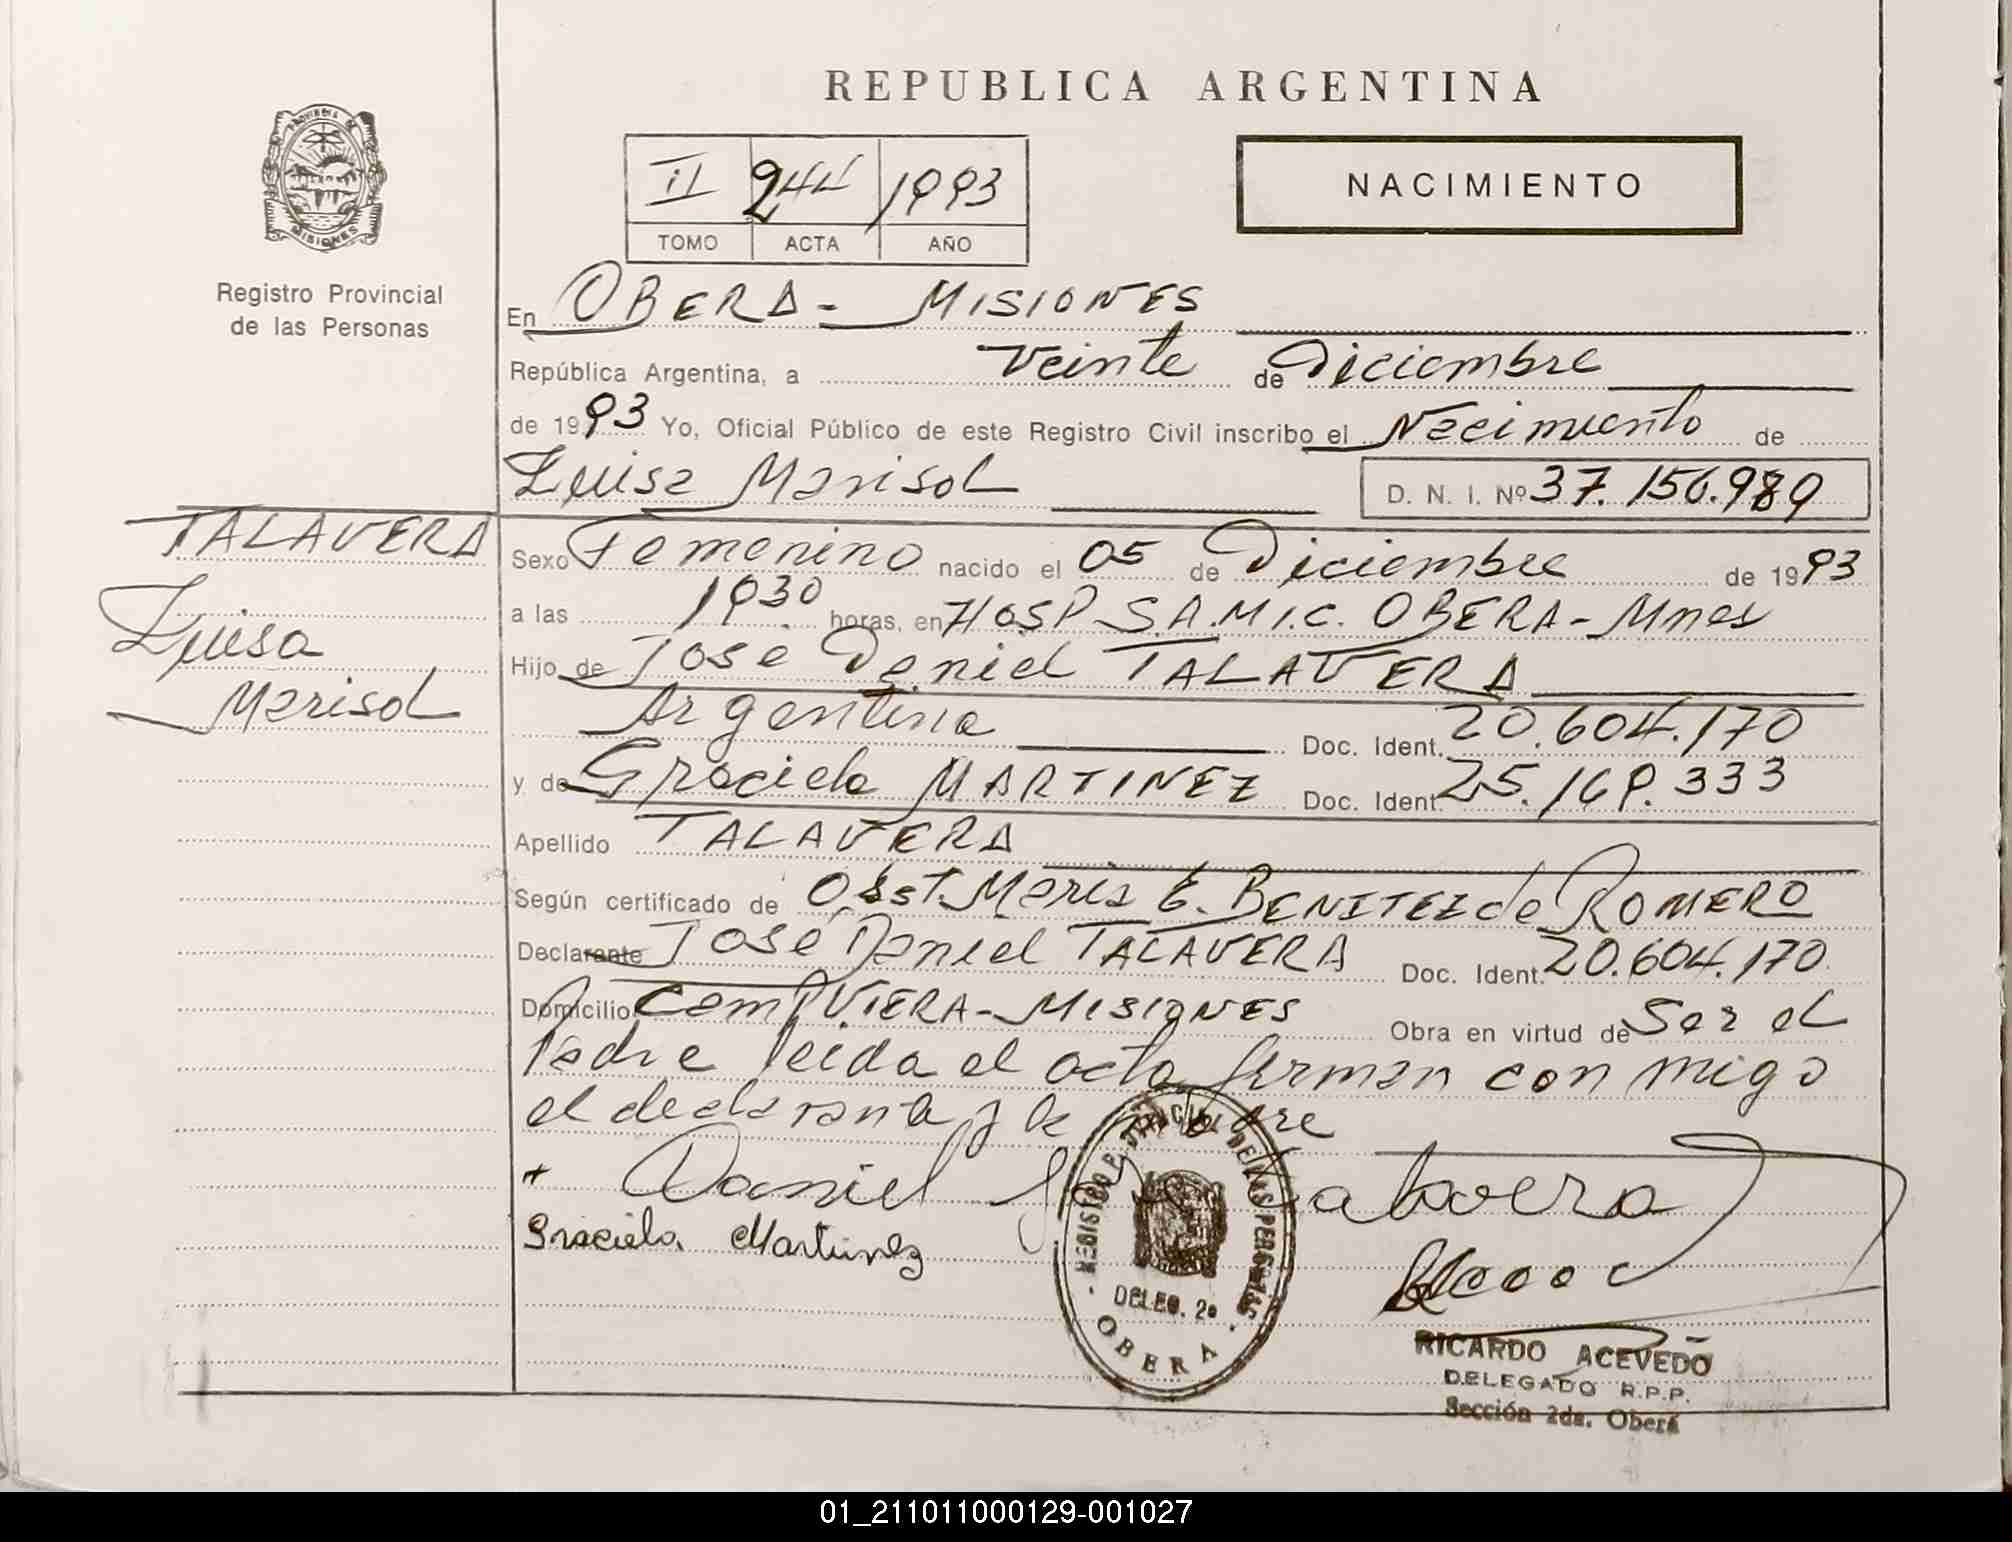 REPUBLICA ARGENTINA
PROVINCIA DE
MISIONES
Registro Provincial
de las Personas
II 244 1993
TOMO ACTA AÑO
NACIMIENTO
En OBERA - MISIONES
República Argentina, a Veinte de Diciembre
de 1993 Yo, Oficial Público de este Registro Civil inscribo el Nacimiento de
Luisa Marisol D. N. I. Nº 37.156.989
TALAVERA
Luisa
Marisol
Sexo Femenino nacido el 05 de Diciembre de 1993
a las 1930 horas, en HOSP S.A.M.I.C. OBERA - Mnes
Hijo de José Daniel TALAVERA
Argentina Doc. Ident. 20.604.170
y de Graciela MARTINEZ Doc. Ident. 25.169.333
Apellido TALAVERA
Según certificado de Obst. Maria E. BENITEZ de ROMERO
Declarante José Daniel TALAVERA Doc. Ident. 20.604.170
Domicilio Cam PVIERA - MISIONES Obra en virtud de Ser el
Padre leida el acta firman con migo
el declarante y la madre
+ Daniel José Talavera
Graciela Martinez
REGISTRO P. DE LAS PERSONAS
DELEG. 2a
OBERA
RICARDO ACEVEDO
DELEGADO R.P.P.
Sección 2da. Oberá
01_211011000129-001027